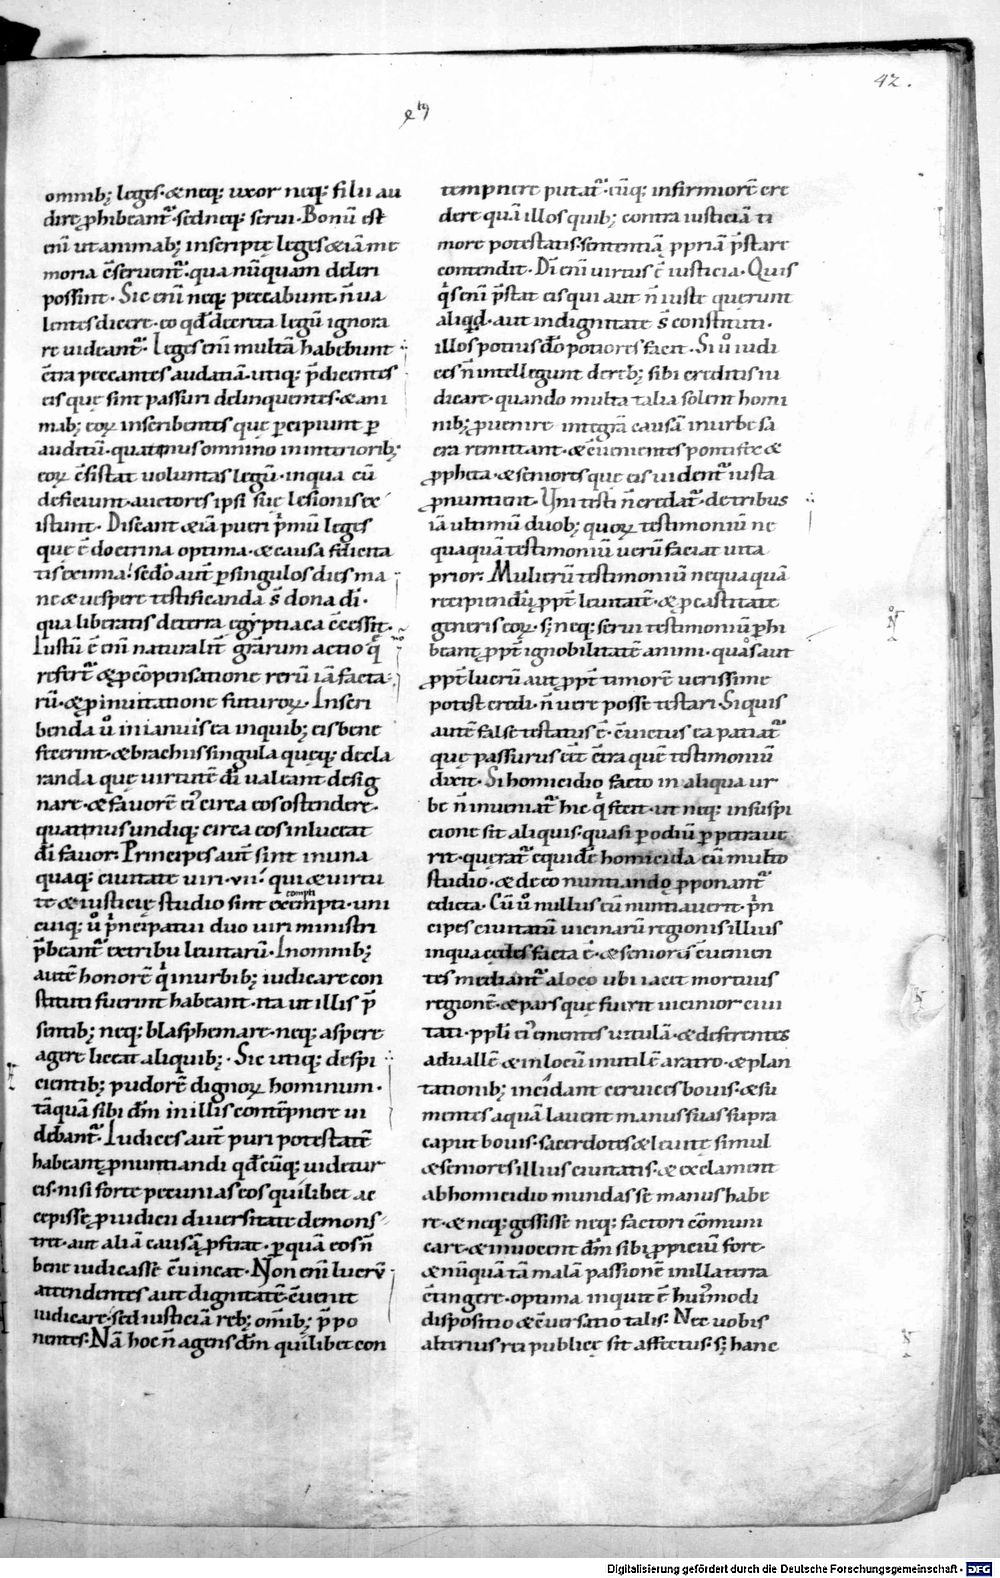 42.
omnib; leges. & neq; uxor neq; filii au
dire ꝓhibeant̃. sed neq; serui. Bonũ est
eni ut animab; inscriptę leges & iã me
moria c̃seruent̃. qua nũquam deleri
possint. Sic eni neq; peccabunt. ñ ua
lentes dicere. eo qđ decreta legũ ignora
re uideant̃. Leges eni multã habebunt
c̃tra peccantes audatiã. utiq; p̃dicentes
eis que sint passuri delinquentes. & ani
mab; eoꝝ inscribentes que percipiunt ꝑ
auditũ. quatinus omnino in interiorib;
eoꝝ c̃sistat uoluntas legũ. in qua cũ
deficiunt. auctores ipsi suę lesionis ex
istunt. Discant & iã pueri p̃mũ leges
que ẽ doctrina optima. & causa felicita
tis exima. sed o aut̃ ꝑ singulos dies ma
ne & uespere testificanda s̃ dona di.
qua liberatis de terra egyptiaca c̃cessit.
Iustũ ẽ eni naturalit̃ grãrum actio q̃
refert̃. & ꝓ cõpensatione rerũ iã facta
rũ. & ꝓ inuitatione futuroꝝ. Inscri
benda ũ in ianuis ea in quib; eis bene
fecerint. & brachiis singula queq; decla
randa quę uirtutẽ di ualeant desig
nare. & fauorẽ ei circa eos ostendere.
quatinus undiq; circa eos inluceat
di fauor. Principes aut̃ sint in una
quaq; ciuitate uiri .vii. qui & uirtu
compti
te & iusticię studio sint exempti. uni
cuiq; ũ p̃ncipatui duo uiri ministri
p̃beant̃ ex tribu leuitarũ. In omnib;
autẽ honorẽ q̃ in urbib; iudicare con
stituti fuerint habeant. ita ut illis p̃
sentib; neq; blasphemare. neq; aspere
agere liceat aliquib;. Sic utiq; despi
cientib; pudorẽ dignoꝝ hominum.
tãquã sibi dm in illis contẽpnere ui
debant̃. Iudices aut̃ puri potestatẽ
habeant ꝓnuntiandi qđcũq; uidetur
eis. nisi forte pecunias eos quilibet ac
cepisse ꝓ iudicii diuersitate demons
tret. aut aliã causã ꝓferat. ꝑ quã eos ñ
bene iudicasse c̃uincat. Non eni lucrũ
attendentes aut dignitatẽ. c̃uenit
iudicare. sed iusticiã reb; omib; p̃po
nentes. Nã hoc ñ agens dm quilibet con
tempnere putat̃. cũq; infirmiorẽ cre
dere quã illos quib; contra iusticiã ti
more potestatis. sententiã ꝓpriã p̃stare
contendit. Di eni uirtus ẽ iusticia. Quis
q̃s eni p̃stat eis qui aut ñ iuste querunt
aliqđ. aut in dignitate s̃ constituti.
illos potius do potiores facit. Si ũ iudi
ces ñ intellegunt de reb; sibi creditis iu
dicare. quando multa talia solent homi
nib; ꝓuenire integrã causã in urbe sa
cra remittant. & c̃uenientes pontifex &
ꝓpheta. & seniores que eis uident̃ iusta
ꝓnuntient. Uni testi ñ credat̃. de tribus
iã ultimũ duob; quoꝝ testimoniũ ne
quaquã testimoniũ uerũ faciat uita
prior. Mulierũ testimoniũ nequaquã
recipiendũ. ꝓpt̃ leuitatẽ. & ꝓcastitate
generis eoꝝ. s; neq; serui testimoniũ ꝓhi
beant ꝓpt̃ ignobilitatẽ animi. quos aut
ꝓpt̃ lucrũ aut ꝓpt̃ timorẽ uerissime
potest credi. ñ uere posse testari. Si quis
autẽ false testatus ẽ. c̃uictus ea patiat̃
quę passurus eẽt c̃tra quẽ testimoniũ
dixit. Si homicidio facto in aliqua ur
be ñ inueniat̃ hic q̃ fecit. ut neq; in suspi
cione sit aliquis. quasi ꝑ odiũ ꝑpetraue
rit. querat̃ equidẽ homicida cũ multo
studio. & de eo nuntiando ꝓponant̃
edicta. Cũ ũ nullus eũ nuntiauerit. p̃n
cipes ciuitatũ uicinarũ regionis illius
in qua cędes facta ẽ. & seniores c̃uenien
tes mediant̃ a loco ubi iacet mortuus
regionẽ. & pars que fuerit uicinior ciui
tati. ppli ei ementes uitulã. & deferentes
ad uallẽ & in locũ inutilẽ aratro. & plan
tationib; incidant ceruices bouis. & su
mentes aquã lauent manus suas supra
caput bouis. sacerdotes & leuite simul
& seniores illius ciuitatis. & exclament
ab homicidio mundas se manus habe
re. & neq; gessisse neq; factori cõmuni
care. & inuocent dm sibi ꝓpiciũ fore.
& nũquã tã malã passionẽ in illa terra
c̃tingere. optima inquit ẽ huiᵒmodi
dispositio & c̃uersatio talis. Nec uobis
alterius rei publicę sit affectus. s; hanc
Digitalisierung gefördert durch die Deutsche Forschungsgemeinschaft - DFG